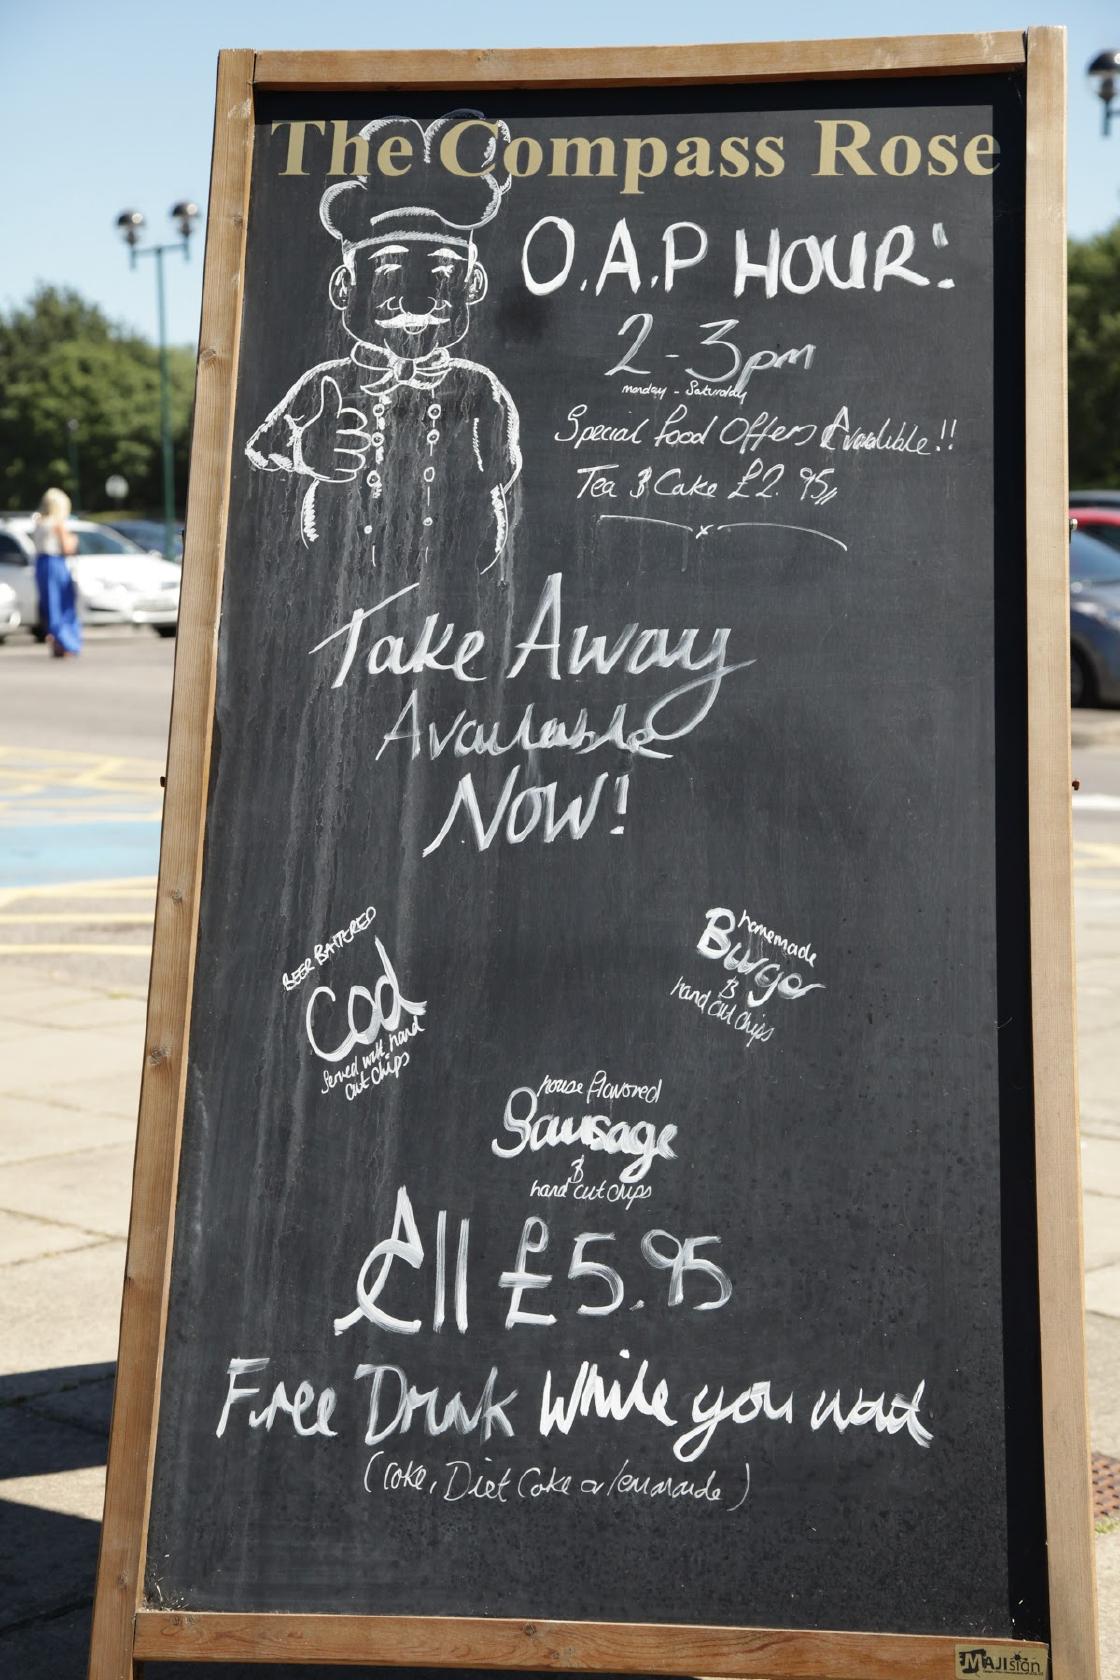 The Compass Rose
O.A.P HOUR:
2-3pm
monday - Saturday
Special food Offers Availible!!
Tea & Cake £2.95
Take Away
Available
Now!
BEER BATTERED
Cod
Served with hand
cut chips
homemade
Burger
&
hand cut chips
house flavored
Sausage
&
hand cut chips
All £5.95
Free Drink While you wait
(Coke, Diet Coke or lemonade)
MAJIsign